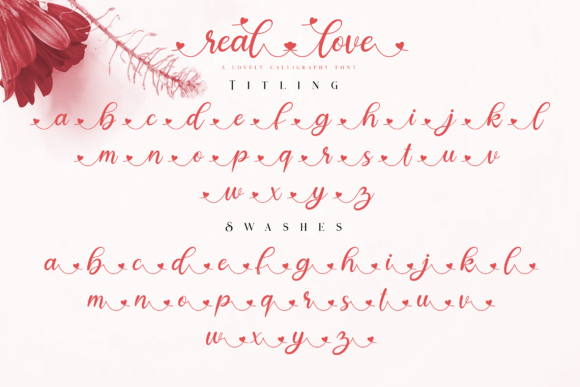 real love
A LOVELY CALLIGRAPHY FONT
Titling
a b c d e f g h i j k l
m n o p q r s t u v
w x y z
Swashes
a b c d e f g h i j k l
m n o p q r s t u v
w x y z